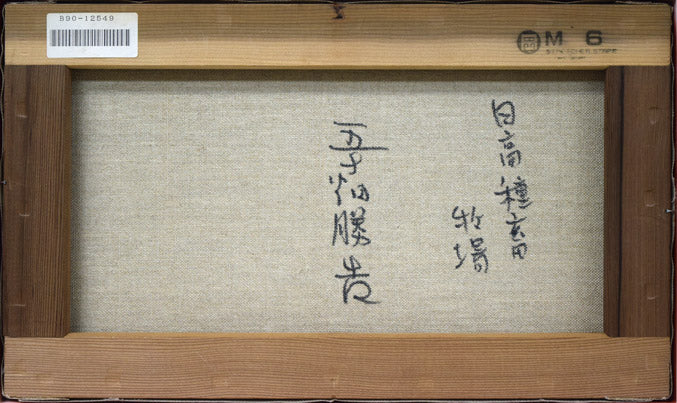 B90-12549
M 6
日高種畜
牧場
五十畑勝吉